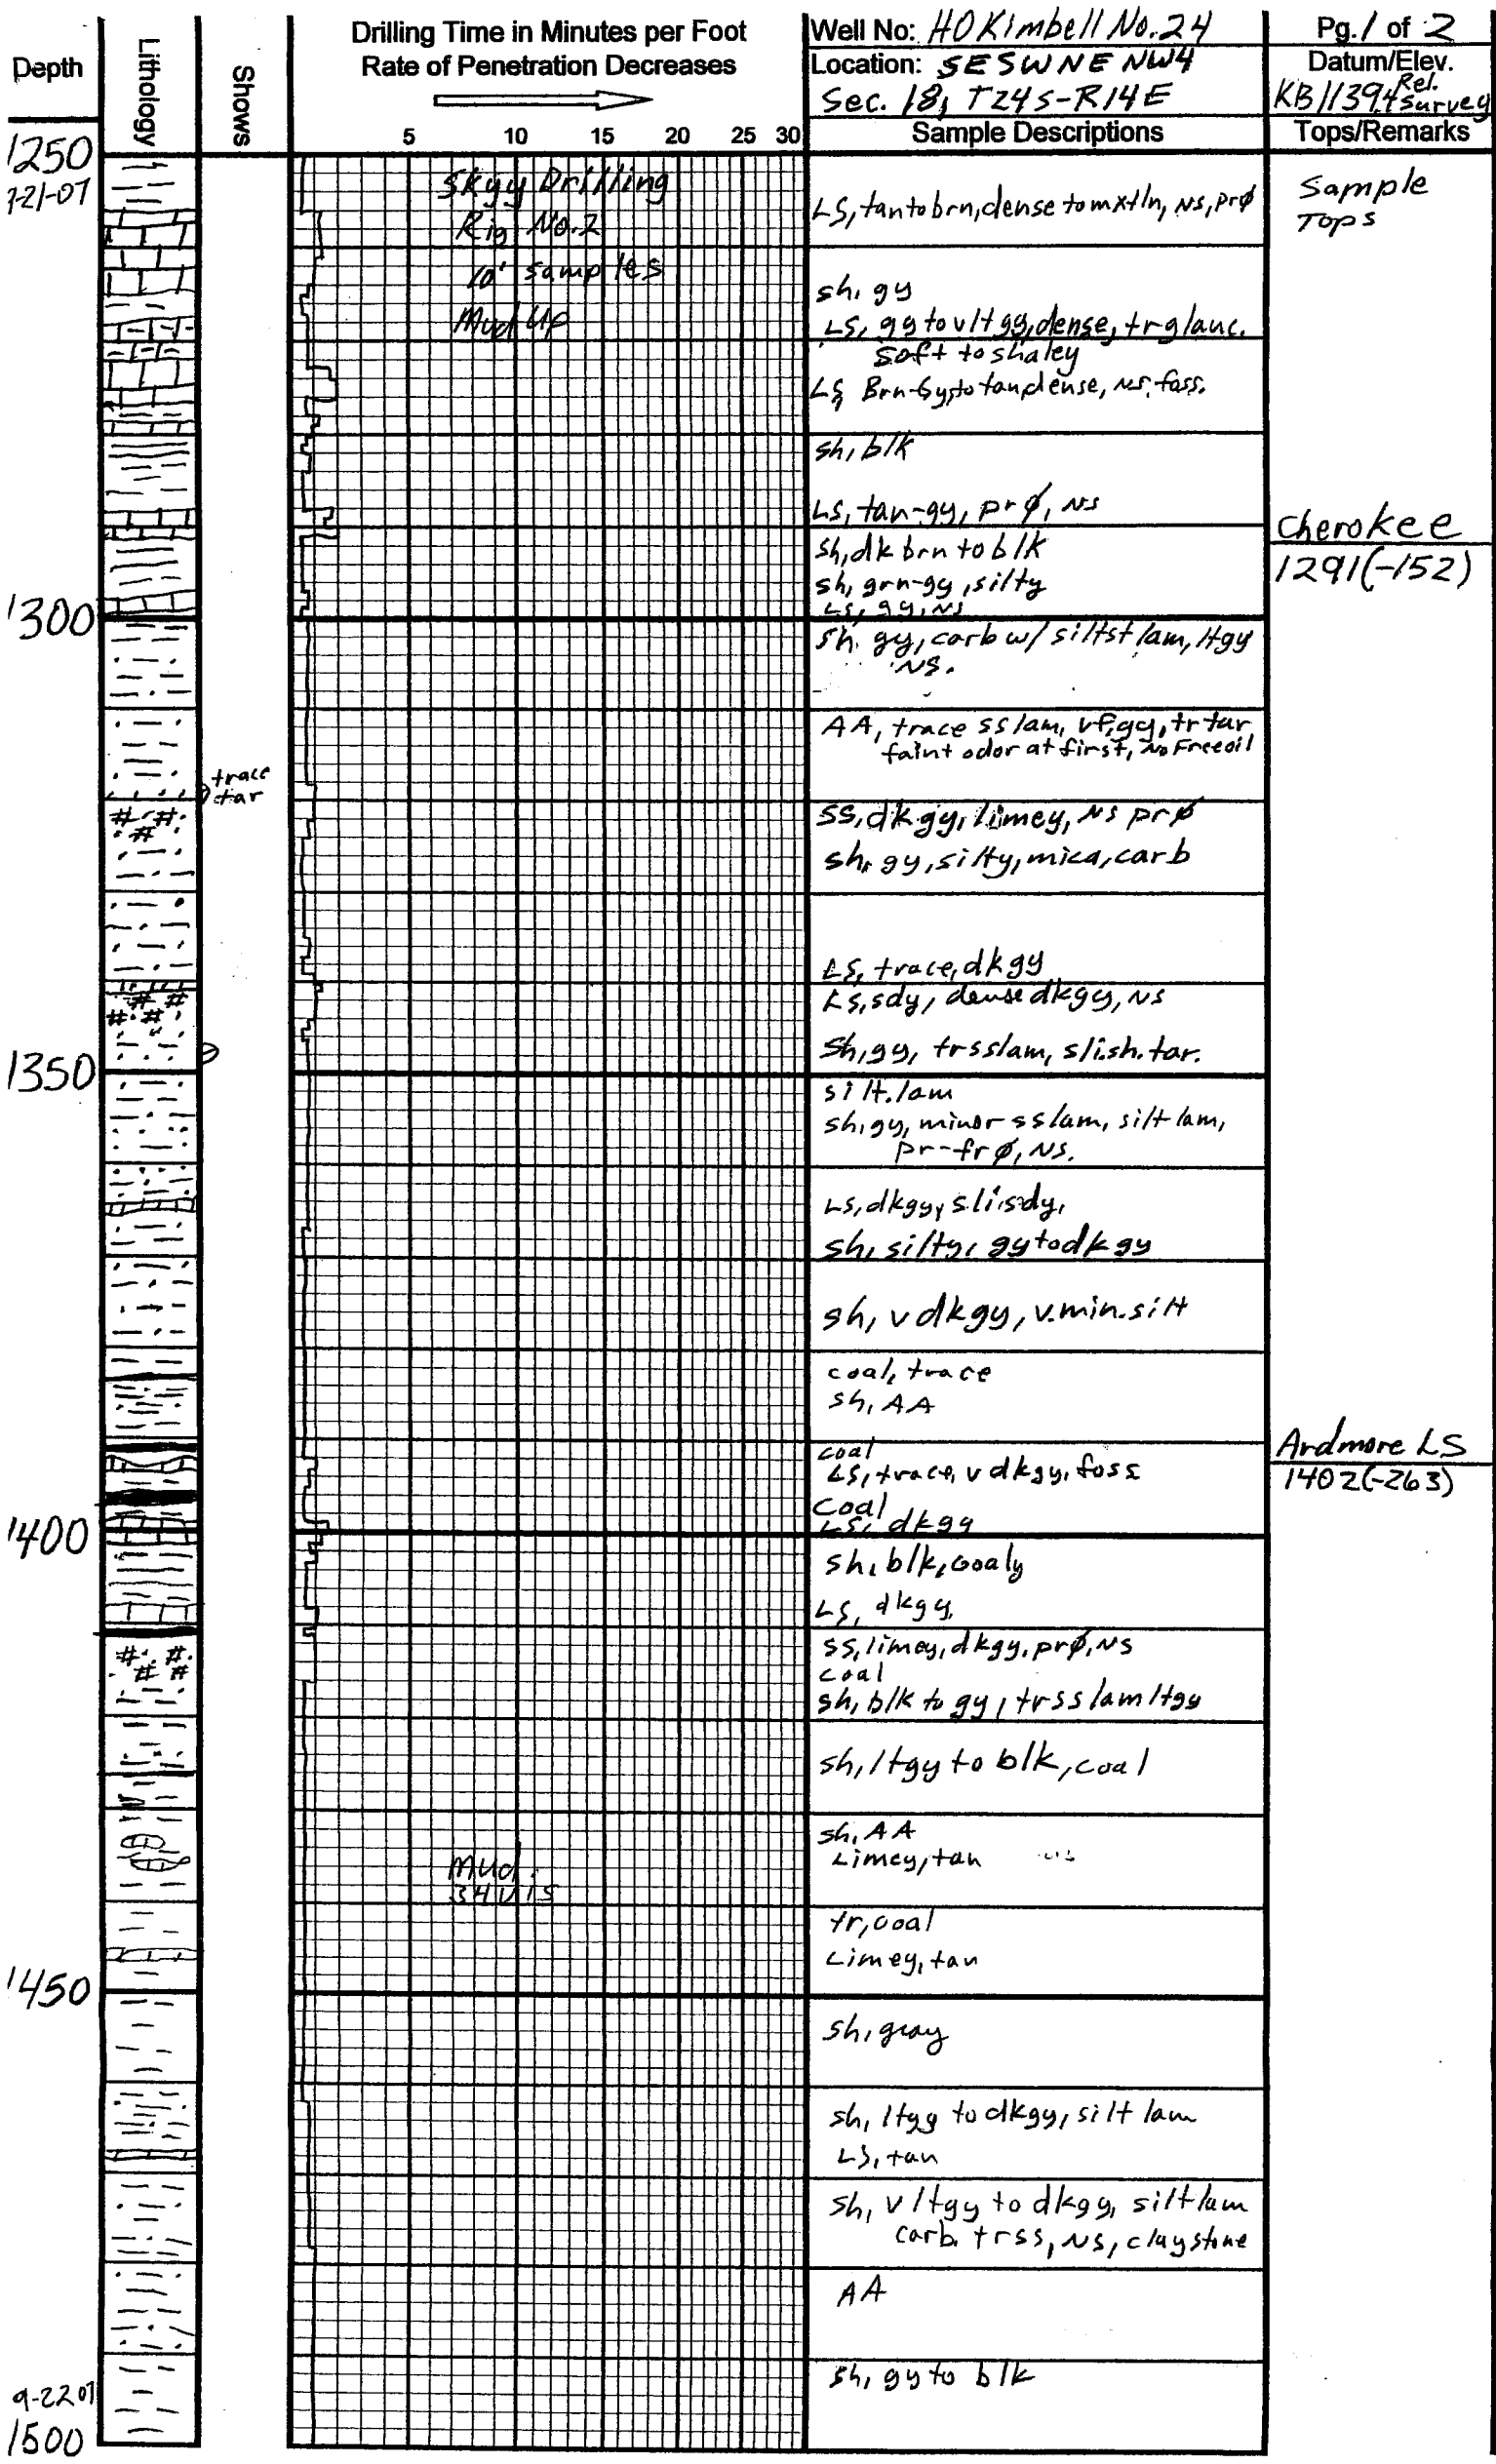 Depth
Lithology
Shows
Drilling Time in Minutes per Foot
Rate of Penetration Decreases
5 10 15 20 25 30
Well No: HO Kimbell No. 24
Location: SE SW NE NW4
Sec. 18, T24S-R14E
Sample Descriptions
Pg. 1 of 2
Datum/Elev.
KB 1139 Rel.
Survey
Tops/Remarks
1250
Skyy Drilling
Rig No. 2
10' samples
Mud Up
LS, tan to brn, dense to mxtln, NS, prØ
Sample
Tops
sh, gy
LS, gy to v lt gy, dense, tr glauc.
soft to shaley
LS, Brn-Gy, to tan, dense, NS, foss.
sh, blk
LS, tan-gy, prØ, NS
Cherokee
1291(-152)
sh, dk brn to blk
sh, grn-gy, silty
LS, gy, NS
1300
sh. gy, carb w/ siltst lam, ltgy
NS.
AA, trace ss lam, vf, gy, tr tar
faint odor at first, No Free oil
trace
tar
SS, dkgy, limey, NS prØ
sh, gy, silty, mica, carb
LS, trace, dkgy
LS, sdy, dense dkgy, NS
Sh, gy, tr ss lam, sli. sh. tar.
1350
silt. lam
sh, gy, minor ss lam, silt lam,
pr-fr Ø, NS.
LS, dkgy, sli. sdy,
sh, silty, gy to dkgy
sh, v dkgy, v. min. silt
coal, trace
sh, AA
coal
LS, trace, v dkgy, foss
Ardmore LS
1402(-263)
Coal
LS, dkgy
1400
sh, blk, coaly
LS, dkgy,
ss, limey, dkgy, prØ, NS
coal
sh, blk to gy, tr ss lam ltgy
sh, ltgy to blk, coal
sh, AA
Limey, tan
Mud.
34 vis
tr, coal
Limey, tan
1450
sh, gray
sh, ltgy to dkgy, silt lam
LS, tan
sh, v ltgy to dkgy, silt lam
carb. tr ss, NS, claystone
AA
sh, gy to blk
9-22 07
1500